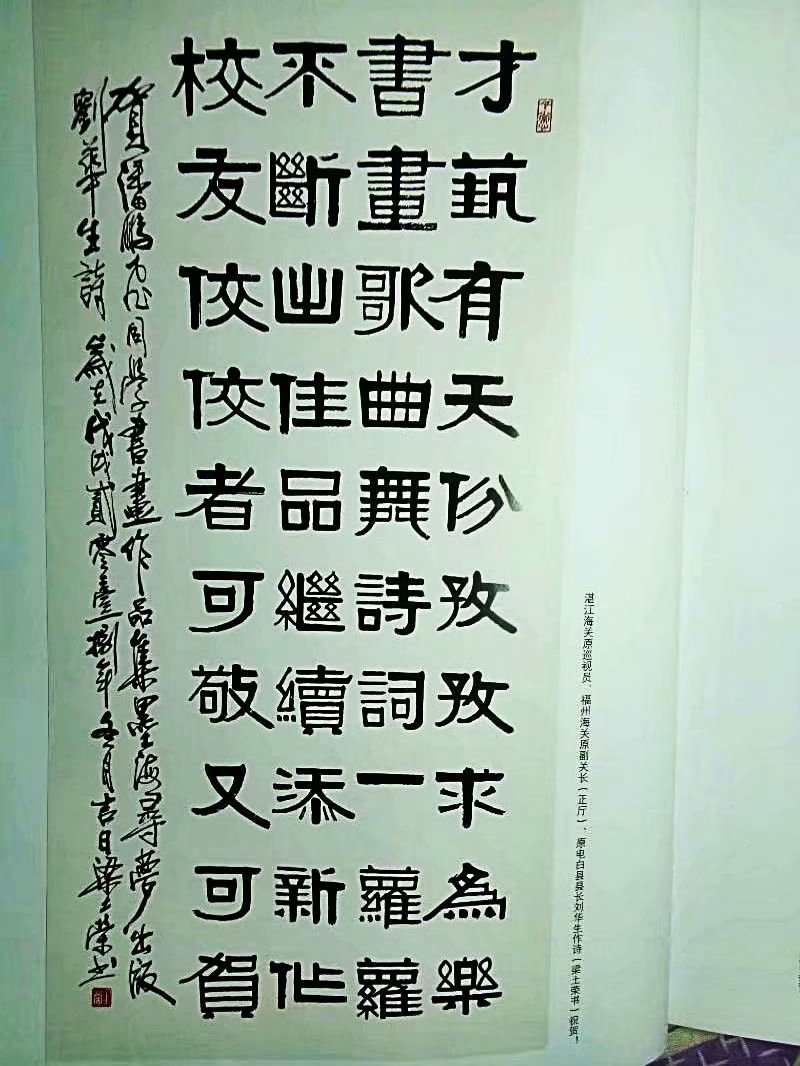 才藝有天份孜孜求為樂
書畫歌曲舞詩詞一蘿蘿
不斷出佳品繼續添新作
校友佼佼者可敬又可賀
賀潘鵬為同學書畫作品集墨海尋夢出版
劉華生詩 歲在戊戌貳零壹捌年冬月吉日梁土榮書
湛江海关原巡视员、福州海关原副关长(正厅)、原电白县县长刘华生作诗(梁土荣书)祝贺!